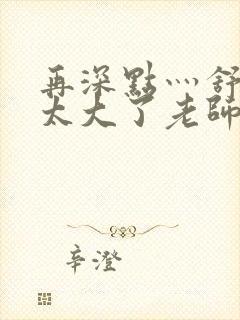 再深點灬舒
太大了老師
辛澄